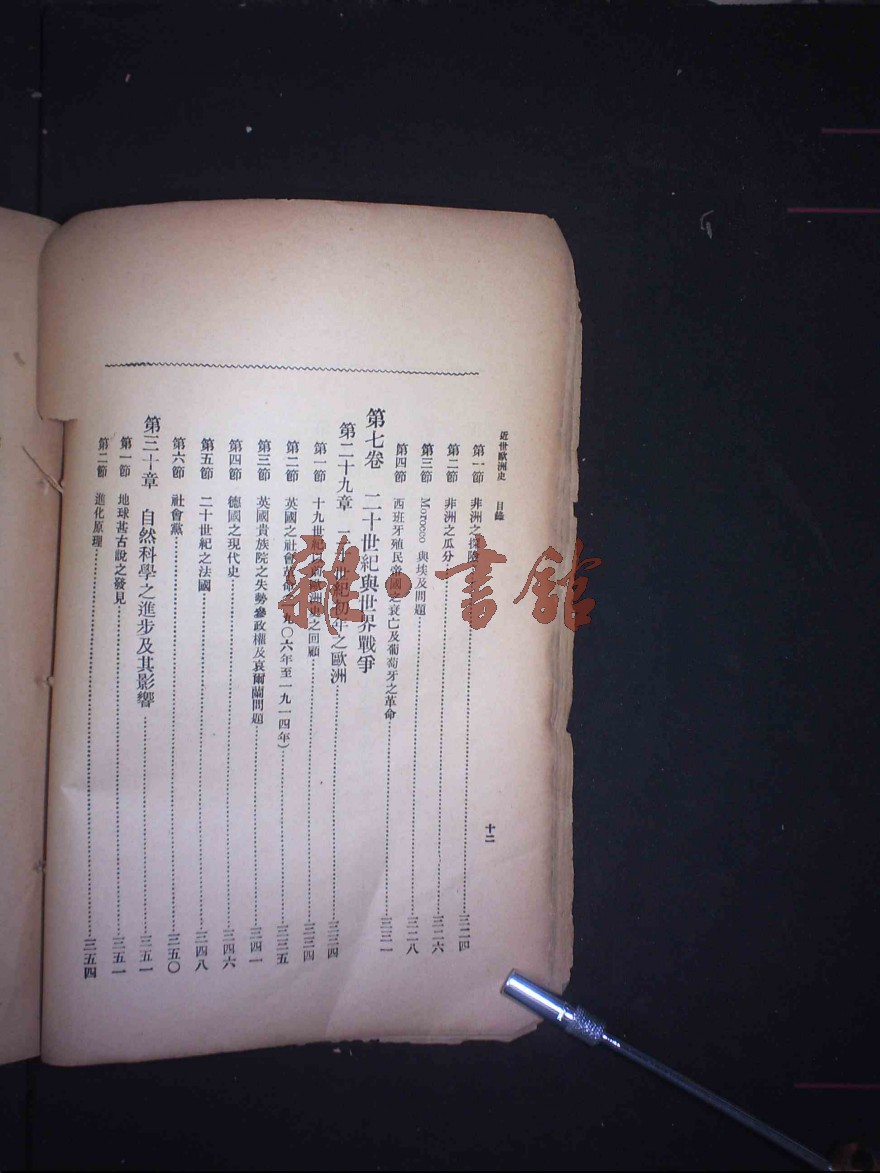 近世歐洲史 目錄 十二
第一節 非洲之探險 三二四
第二節 非洲之瓜分 三二六
第三節 Morocco 與埃及問題 三二八
第四節 西班牙殖民帝國之衰亡及葡萄牙之革命 三三一
第七卷 二十世紀與世界戰爭
第二十九章 二十世紀初年之歐洲 三三四
第一節 十九世紀以前歐洲史之回顧 三三四
第二節 英國之社會革命(一九〇六年至一九一四年) 三三五
第三節 英國貴族院之失勢參政權及哀爾蘭問題 三四一
第四節 德國之現代史 三四六
第五節 二十世紀之法國 三四八
第六節 社會黨 三五〇
第三十章 自然科學之進步及其影響 三五一
第一節 地球甚古說之發見 三五一
第二節 進化原理 三五四
雜·書館